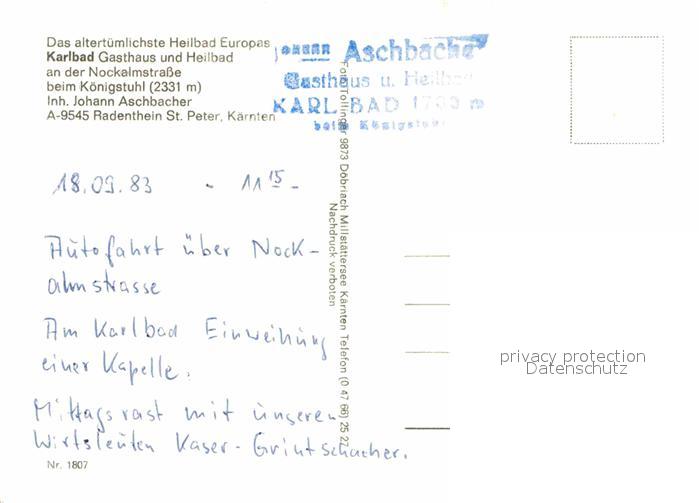 Das altertümlichste Heilbad Europas
Karlbad Gasthaus und Heilbad
an der Nockalmstraße
beim Königstuhl (2331 m)
Inh. Johann Aschbacher
A-9545 Radenthein St. Peter, Kärnten
Johann Aschbacher
Gasthaus u. Heilbad
KARLBAD 1700 m
beim Königstuhl
18.09.83 - 11 15 -
Autofahrt über Nock-
almstrasse
Am Karlbad Einweihung
einer Kapelle.
Mittagsrast mit unseren
Wirtsleuten Kaser-Grintschacher.
Nr. 1807
Foto Tollinger 9873 Döbriach Millstättersee Kärnten Telefon (0 47 66) 25 22
Nachdruck verboten
privacy protection
Datenschutz